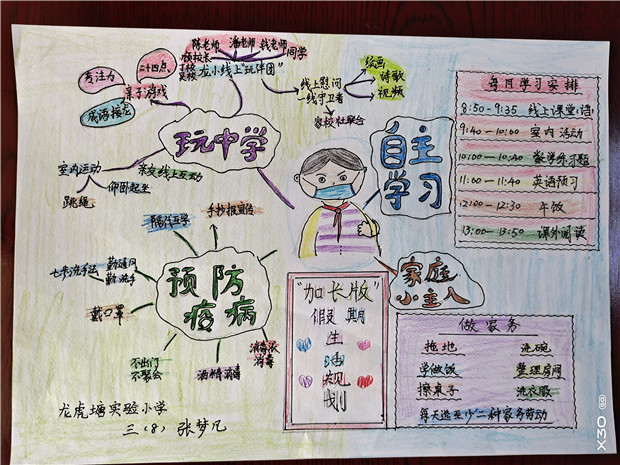 陈老师 潘老师 钱老师
同学
龙小线上"玩伴团"
专注力
二十四点
亲子游戏
成语接龙
线上慰问
一线守卫者
绘画
诗歌
视频
家校社联合
玩中学
室内运动
亲友线上互动
仰卧起坐
跳绳
自主
学习
每日学习安排
8:50-9:35 线上课堂
9:40-10:00 室内活动
10:00-10:40 数学练习题
11:00-11:40 英语预习
12:00-12:30 午饭
13:00-13:50 课外阅读
家庭
小主人
陪伴互学
手抄报宣传
七步洗手法
勤通风
勤洗手
预防
疫病
戴口罩
不出门
不聚会
酒精消毒
消毒液
消毒
"加长版"
假期
生
活
规
划
做家务
拖地 洗碗
学做饭 整理房间
擦桌子 洗衣服
每天选至少二种家务劳动
龙虎塘实验小学
三(8) 张梦凡
X30